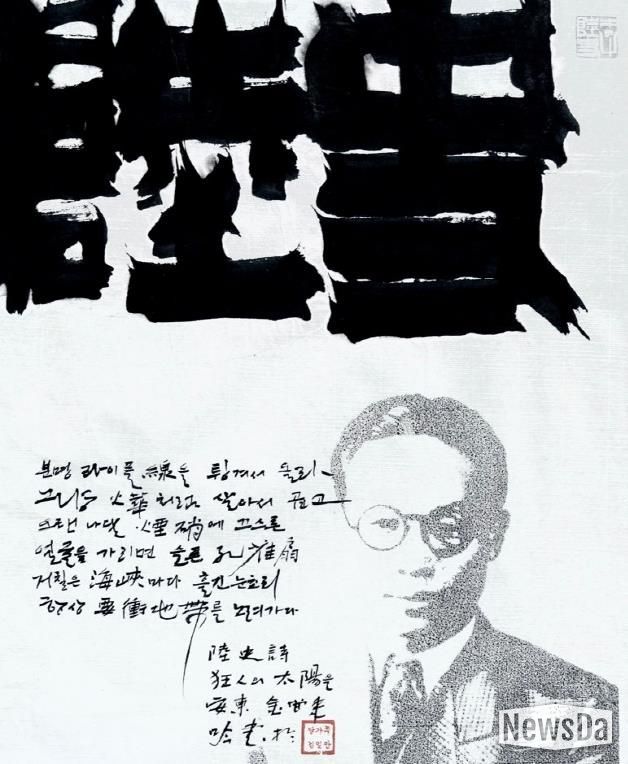 분명 라이플線을 튕겨서 올라
그냥 火華처럼 살아서 곱고
오랜 나달 煙硝에 끄스른
얼굴을 가리면 슬픈 孔雀扇
거칠은 海峽마다 흘긴 눈초리
항상 要衝地帶를 노려가다
陸史詩
狂人의 太陽을
安東 金
NewsDa